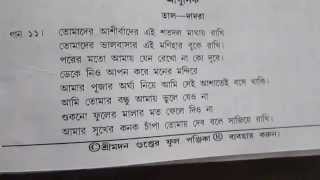 আধুনিক
তাল—দাদরা
গান ১১। তোমাদের আশীর্বাদের এই শতদল মাথায় রাখি
তোমাদের ভালবাসার এই মণিহার বুকে রাখি।
পরের মতো আমায় যেন রেখো না কো দূরে।
ডেকে নিও আপন করে মনের মন্দিরে
আমার পূজার অর্ঘ্য নিয়ে আমি সেই আশাতেই বসে থাকি।
আমি তোমার বন্ধু আমায় ভুলে যেও না
শুকনো ফুলের মালার মত ফেলে দিও না
আমার সুখের কনক চাঁপা তোমায় দেব বলে সাজিয়ে রাখি।
Ⓒশ্রীমদন গুপ্তের ফুল পঞ্জিকা Ⓡ ব্যবহার করুন।